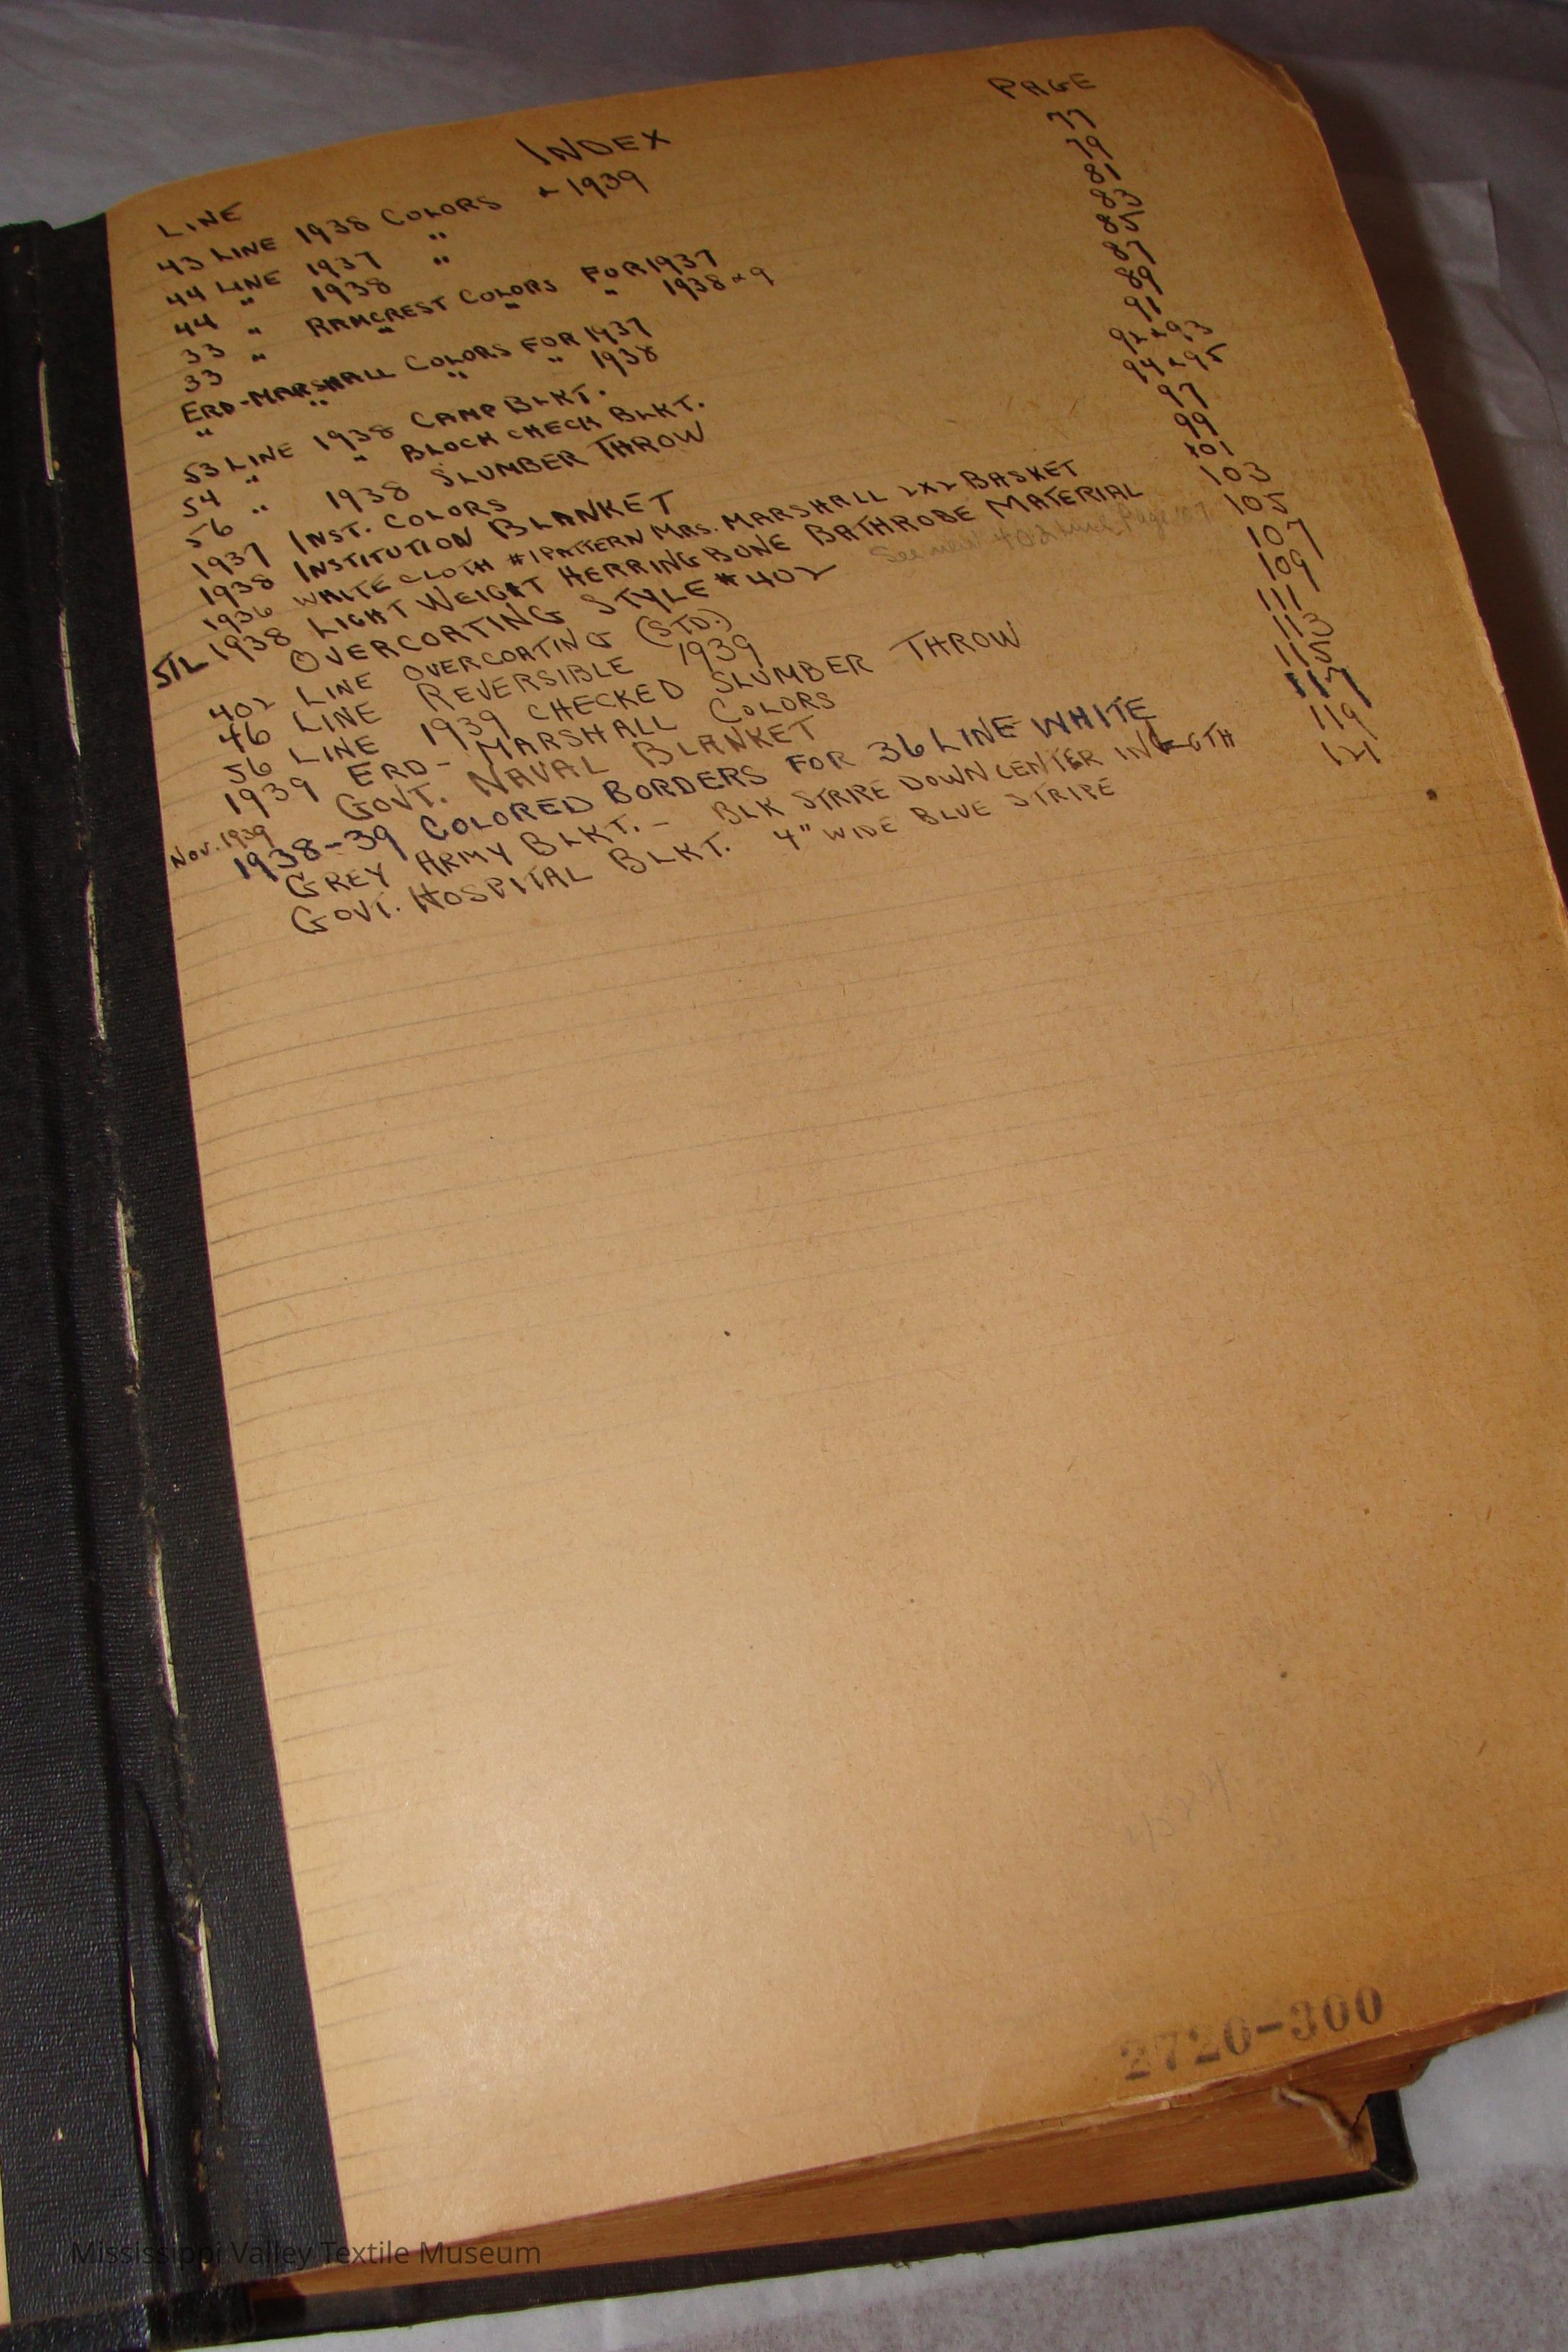 INDEX
LINE PAGE
43 LINE 1938 COLORS & 1939 77
44 LINE 1937 " 79
44 " 1938 " 81
33 " RAMCREST COLORS FOR 1937 83
33 " " " " 1938 & 9 85
ERD-MARSHALL COLORS FOR 1937 87
" " " " 1938 89
53 LINE 1938 CAMP BLKT. 91
54 " " BLOCK CHECK BLKT. 92 & 93
56 " 1938 SLUMBER THROW 94 & 95
1937 INST. COLORS 97
1938 INSTITUTION BLANKET 99
1936 WHITE CLOTH #1 PATTERN MRS. MARSHALL 2X2 BASKET 101
STL 1938 LIGHT WEIGHT HERRINGBONE BATHROBE MATERIAL 103
OVERCOATING STYLE #402 See new 402 Line Page 107 105
402 LINE OVERCOATING (STD.) 107
46 LINE REVERSIBLE 1939 109
56 LINE 1939 CHECKED SLUMBER THROW 111
1939 ERD-MARSHALL COLORS 113
Nov. 1939 GOVT. NAVAL BLANKET 115
1938-39 COLORED BORDERS FOR 36 LINE WHITE 117
GREY ARMY BLKT. - BLK STRIPE DOWN CENTER IN LGTH 119
GOVT. HOSPITAL BLKT. 4" WIDE BLUE STRIPE 121
2720-300
Mississippi Valley Textile Museum